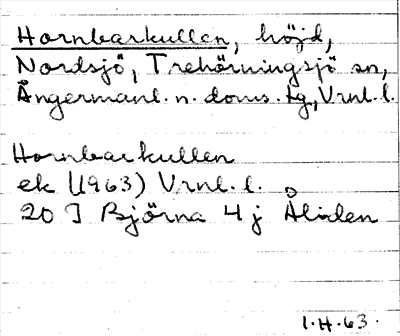 Hornbarkullen, höjd,
Nordsjö, Trehörningsjö sn,
Ångermanl. n. doms. tg, Vrnl. l.
Hornbarkullen
ek (1963) Vrnl. l.
20 J Björna 4 j Åliden
1.H.63.